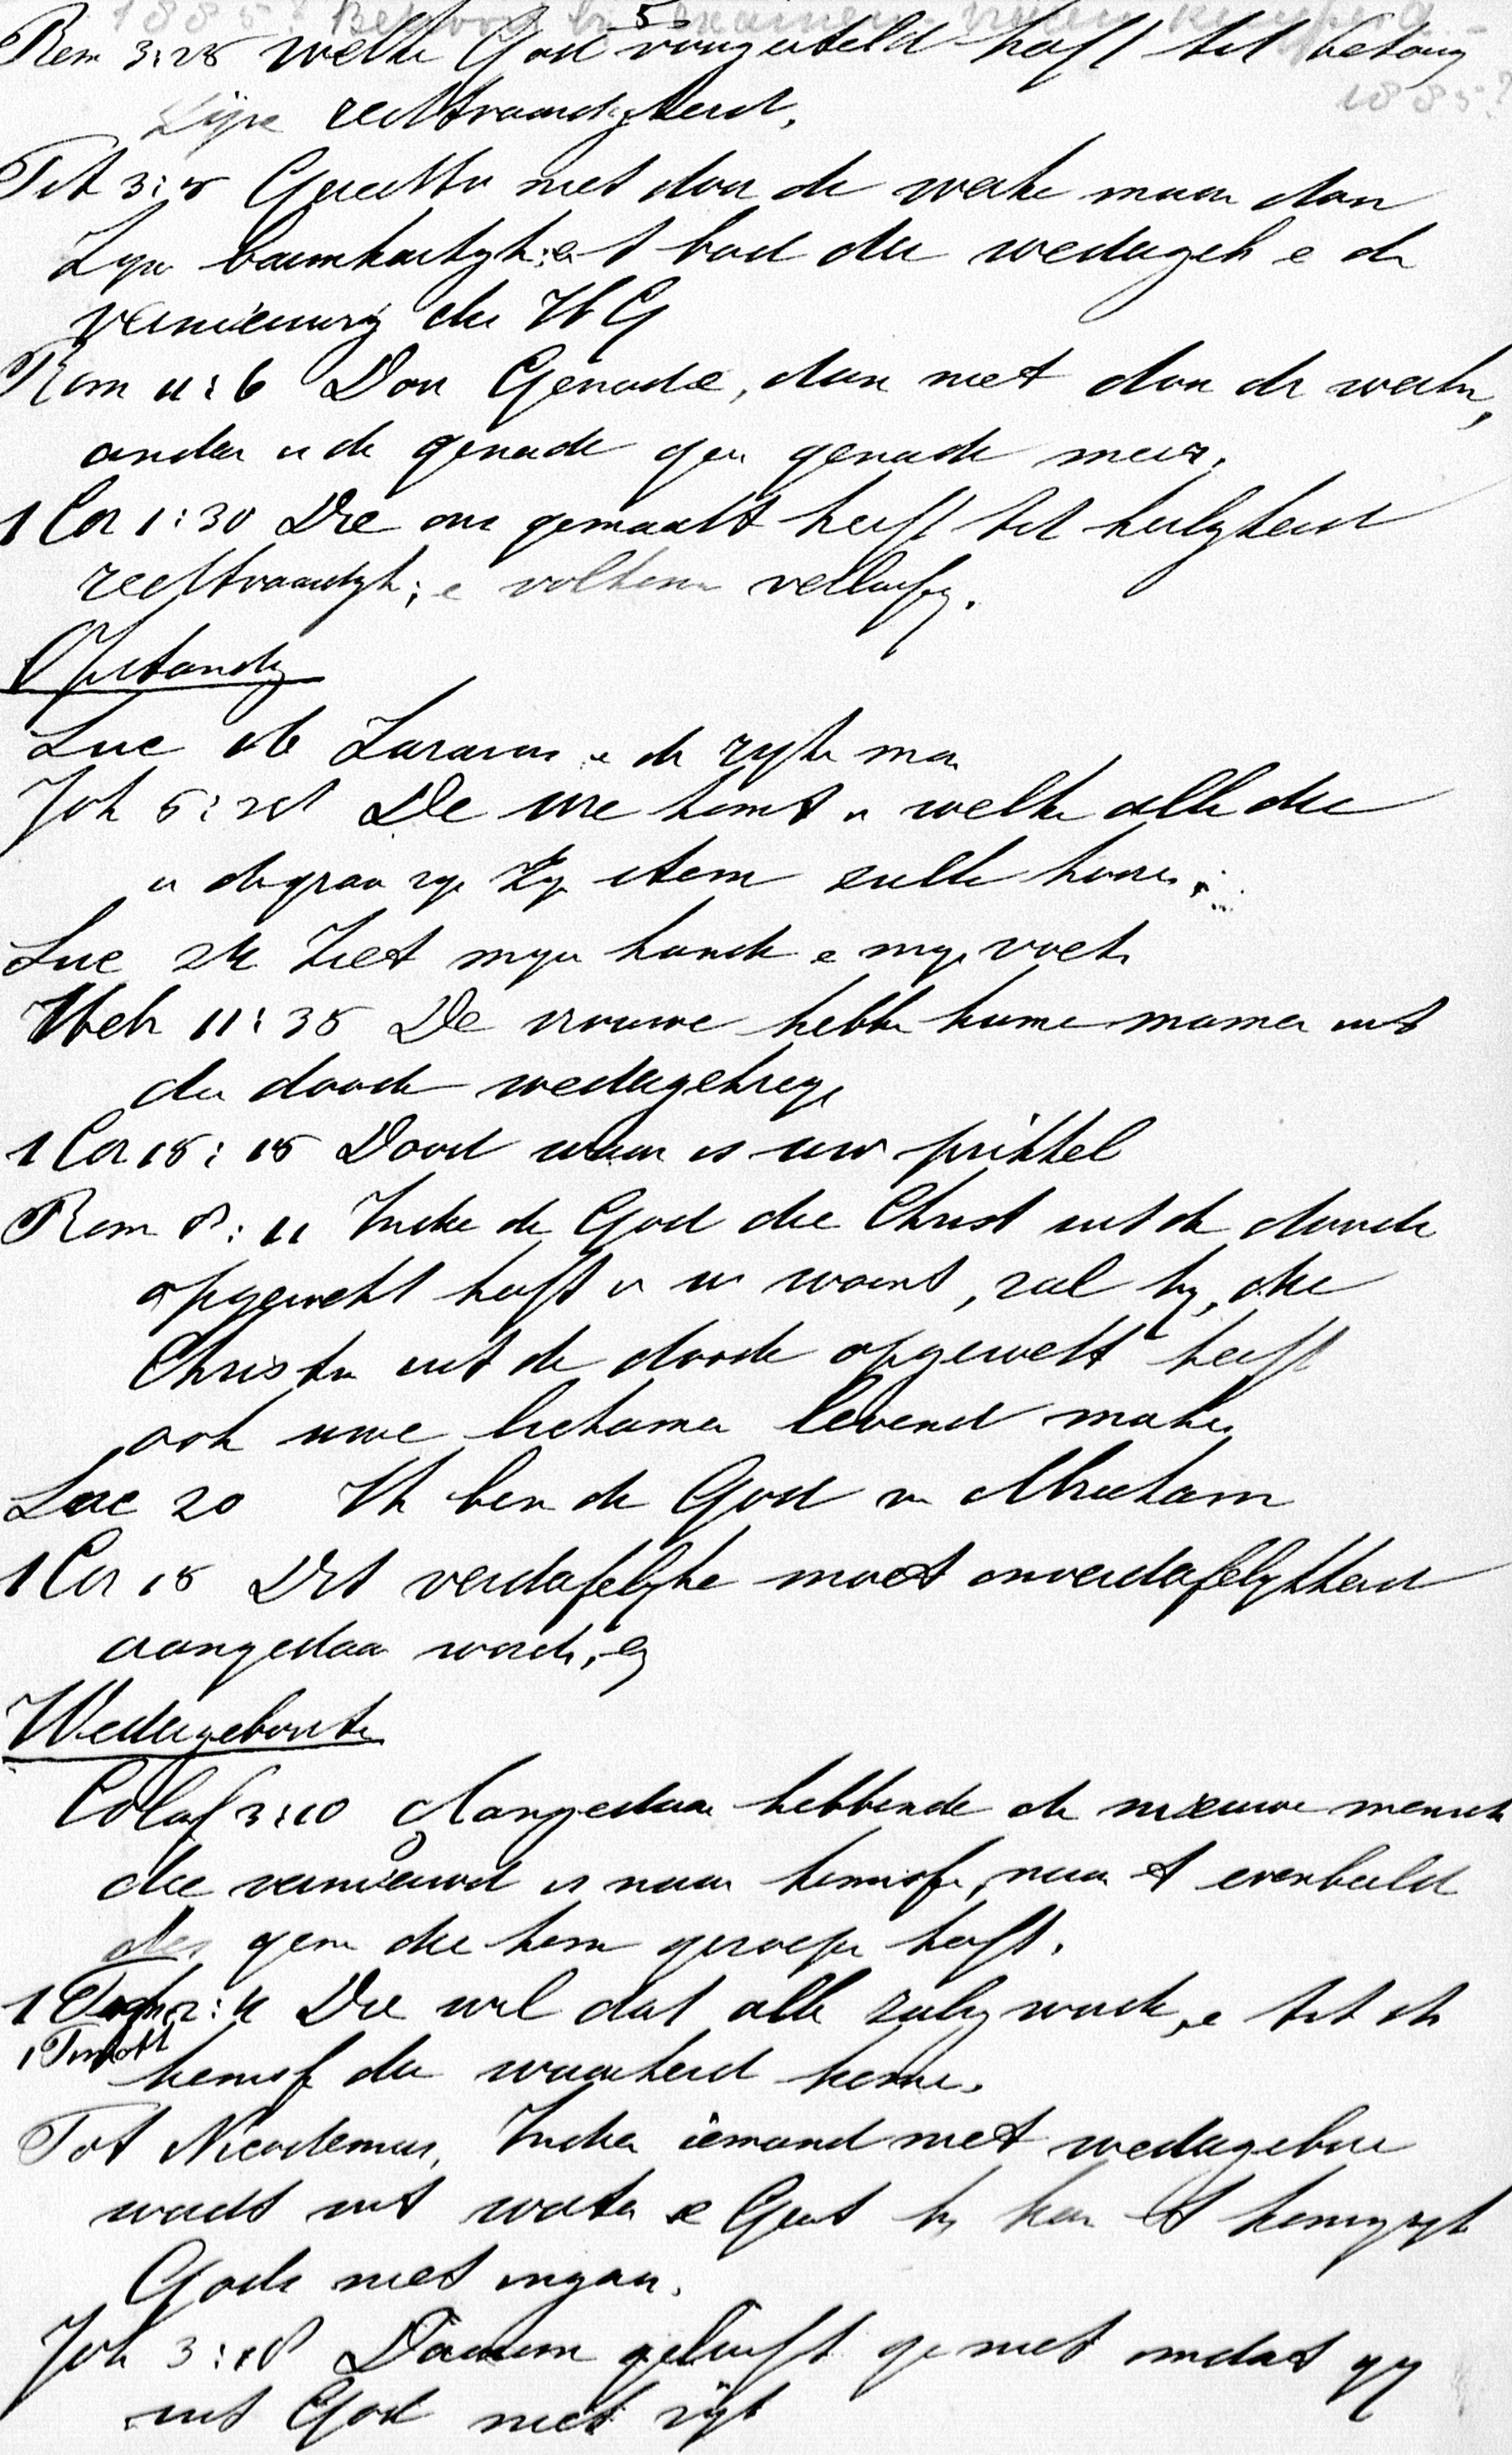 Rom 3:25 welke God voorgesteld heeft tot betoog
Zijne rechtvaardigheid.
Tit 3:5 Gerechtv niet door de werke maar door
Zijn barmhartigh: e t bad der wedergeb e de
vernieuwing des H G
Rom 11:6 Door Genade, dan niet door de werke,
ander is de genade gen genade meer.
1 Cor 1:30 Die ons gemaakt heeft tot heiligheid
rechtvaardigh; e volkom verlossing.
Opstanding
Luc 16 Lazarus e de rijke man
Joh 5:28 De ure komt in welke alle die
in de grav zijn Zijn stem zulle hooren.
Luc 24 Ziet mijn hande e mijn voete
Heb 11:35 De vrouwe hebbe hunne manne uit
de doode wedergekrege
1 Cor 15:15 Dood waar is uw prikkel
Rom 8:11 Indie de God die Christ uit de doode
opgewekt heeft in u woont, zal hij, die
Christu uit de doode opgewekt heeft
ook uwe lichame levend make
Luc 20 Ik ben de God v Abraham
1 Cor 15 Dit verderfelijke moet onverderfelijkheid
aangedaan worde, e
Wedergeboorte
Colos 3:10 Aangedaan hebbende de nieuwe mensch
die vernieuwd is naar kennisse, naar t evenbeeld
des gene die hem geroepe heeft.
1 2:4 Die wil dat alle zalig worde, e tot de
1 Timoth
kennis der waarheid kome.
Tot Nicodemus, Indien iemand niet wedergebore
wordt uit water e Geest hij kan t koningrijk
Gods niet ingaan.
Joh 3:18 Daarom gelooft ge niet omdat gij
uit God niet zijt